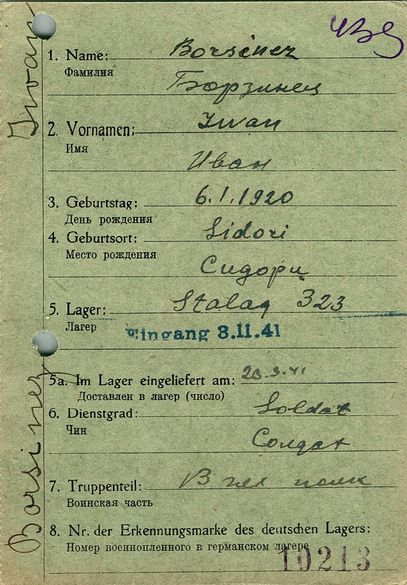 1. Name: Borsinez
Фамилия
Борзинец
2. Vornamen: Iwan
Имя
Иван
3. Geburtstag: 6.1.1920
День рождения
4. Geburtsort: Sidori
Место рождения
Сидори
5. Lager: Stalag 323
Лагер
Eingang 8.11.41
5a. Im Lager eingeliefert am:
Доставлен в лагер (число)
6. Dienstgrad: Soldat
Чин
Солдат
7. Truppenteil:
Воинская часть
8. Nr. der Erkennungsmarke des deutschen Lagers:
Номер военнопленного в германском лагере
10213
Borsinez Iwan